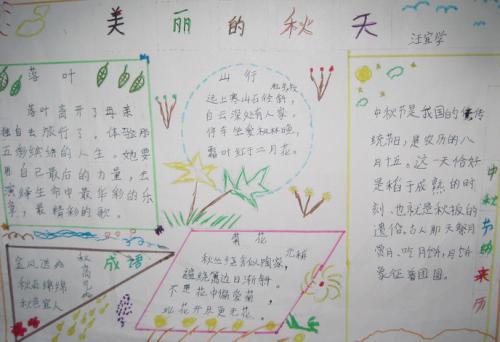 美丽的秋天
汪宜学
落叶
落叶离开了母亲，
独自去旅行了。体验那
五彩缤纷的人生。她要
用自己最后的力量，去
演绎生命中最华彩的乐
章，最精彩的歌。
山行
杜牧
远上寒山石径斜，
白云深处有人家。
停车坐爱枫林晚，
霜叶红于二月花。
中秋节是我国的传
统节日，是农历的八
月十五。这一天恰好
是稻子成熟的时
刻，也就是秋报的
遗俗。古人那天祭月
赏月、吃月饼，月饼
象征着团圆。
中秋节的来历
成语
金风送爽
秋高气爽
秋雨绵绵
秋色宜人
菊花
元稹
秋丛绕舍似陶家，
遍绕篱边日渐斜。
不是花中偏爱菊，
此花开尽更无花。